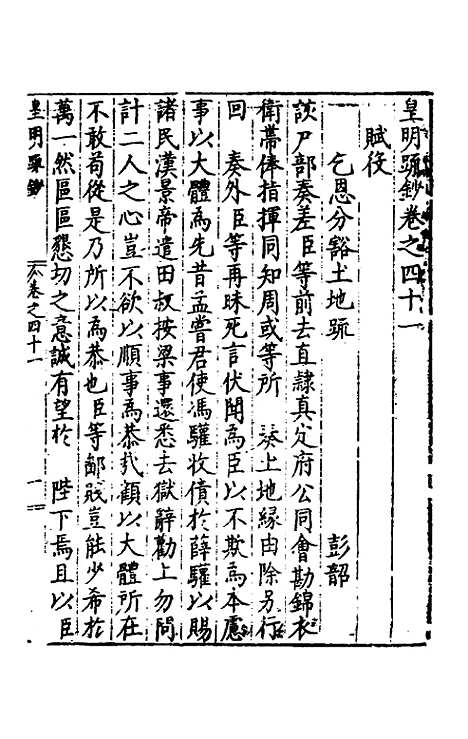 皇明疏鈔卷之四十一
賦役
乞恩分豁土地疏 彭韶
該戸部奏差臣等前去直隷真定府公同會勘錦衣
衛帶俸指揮同知周或等所 奏土地縁由除另行
回 奏外臣等再昧死言伏聞為臣以不欺為本慮
事以大體為先昔孟嘗君使馮驩收債於薛驩以賜
諸民漢景帝遣田叔按梁事還悉去獄辭勸上勿問
計二人之心豈不欲以順事為恭哉顧以大體所在
不敢苟從是乃所以為恭也臣等鄙賤豈能少希於
萬一然區區懇切之意誠有望於 陛下焉且以臣
皇明疏鈔 卷之四十一 一